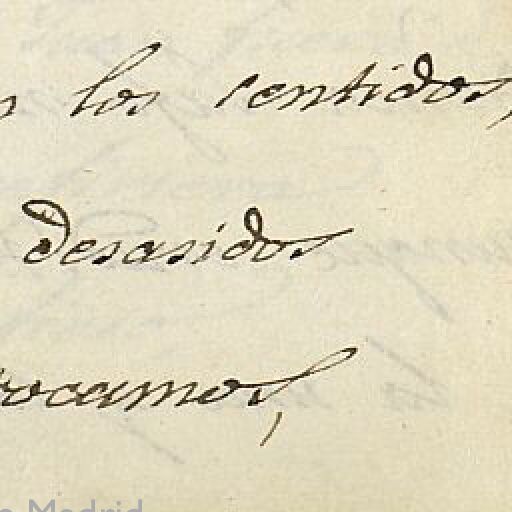 los sentidos,
desasidos
rocamos,
Madrid